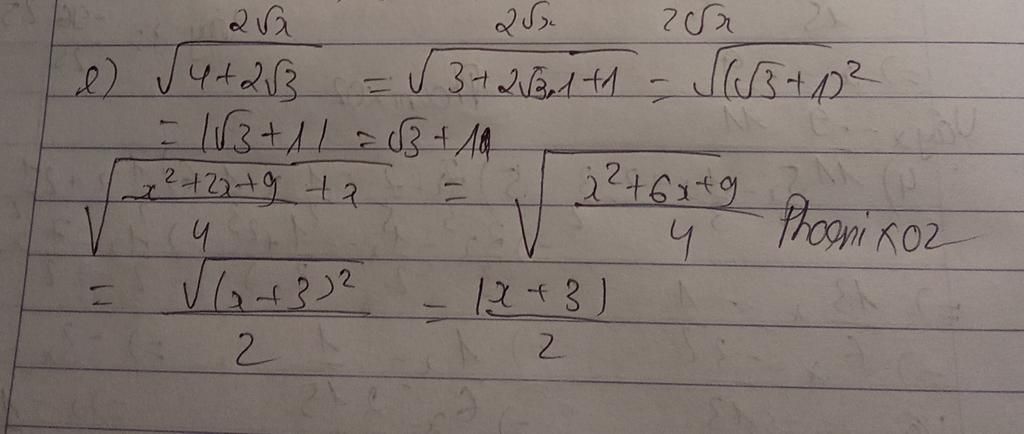 2√x 2√x 2√x
e) √(4+2√3) = √(3+2√3.1+1) = √(√3+1)²
= |√3+1| = √3+1
√((x²+2x+9)/4 + x) = √((x²+6x+9)/4) PhoeniX02
= √(x+3)²/2 = |x+3|/2